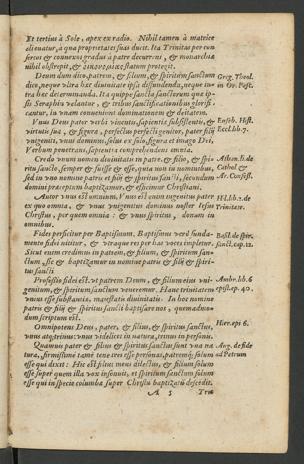 Et tertius à Sole, apex ex radio. Nihil tamen à matrice
alienatur, à qua proprietates suas ducit. Ita Trinitas per con
sertos & connexos gradus à patre decurrens, & monarchiæ
nihil obstrepit, & statum protegit.
Deum dum dico, patrem, & filium, & spiritum sanctum
dico, neque vltra hæc diuinitate ipsa diffundenda, neque in-
tra hæc determinanda. Ita quippe sancta sanctorum quæ ip-
sis Seraphin velantur, & tribus sanctificationibus glorifi-
cantur, in vnam conueniunt dominationem & deitatem.
Greg. Theol.
in Or. Past.
Vnus Deus pater verbi viuentis, sapientiæ subsistentis, &
virtutis suæ, & figuræ, perfectus perfecti genitor, pater filij
vnigeniti, vnus dominus, solus ex solo, figura et imago Dei,
Verbum penetrans, sapientia comprehendens omnia.
Euseb. Hist.
Eccl. lib. 7.
Credo vnum nomen diuinitatis in patre, & filio, & spi-
ritu sancto, semper & fuisse & esse, quia non in nominibus,
sed in vno nomine patris et filij & spiritus sancti, secundum
domini præceptum baptizamur, & efficimur Christiani.
Athan. li. de
Cathol &
Ar. Confess.
Autor vnus est omnium, Vnus est enim ingenitus pater
ex quo omnia, & vnus vnigenitus dominus noster Iesus
Christus, per quem omnia: & vnus spiritus, donum in
omnibus.
Hil. lib. 2. de
Trinitate.
Fides perficitur per Baptismum, Baptismus verò funda-
mento fidei nititur, & vtraque res per has voces impletur.
Sicut enim credimus in patrem, & filium, & spiritum san-
ctum, sic & baptizamur in nomine patris & filij & spiri-
tus sancti
Basil. de spir.
sanct. cap. 12.
Professio fidei est, vt patrem Deum, & filium eius vni-
genitum, & spiritum sanctum veneremur. Hanc trinitatem
vnius esse substantiæ, maiestatis diuinitatis. In hoc nomine
patris & filij & spiritus sancti baptisare nos, quemadmo-
dum scriptum est.
Ambr. lib. 6
epist. ep. 40.
Omnipotens Deus, pater, & filius, & spiritus sanctus,
vnus atq; trinus: vnus videlicet in natura, trinus in personis.
Hier. epi 6.
Quamuis pater & filius & spiritus sanctus sunt vna na
tura, firmissimè tamẽ tene tres esse personas, patremq; solum
esse qui dixit: Hic est filius meus dilectus, & filium solum
esse super quem illa vox insonuit, et spiritum sanctum solum
esse qui in specie columbæ super Christũ baptizatũ descẽdit.
Aug. de fide
ad Petrum
A 5
Tria